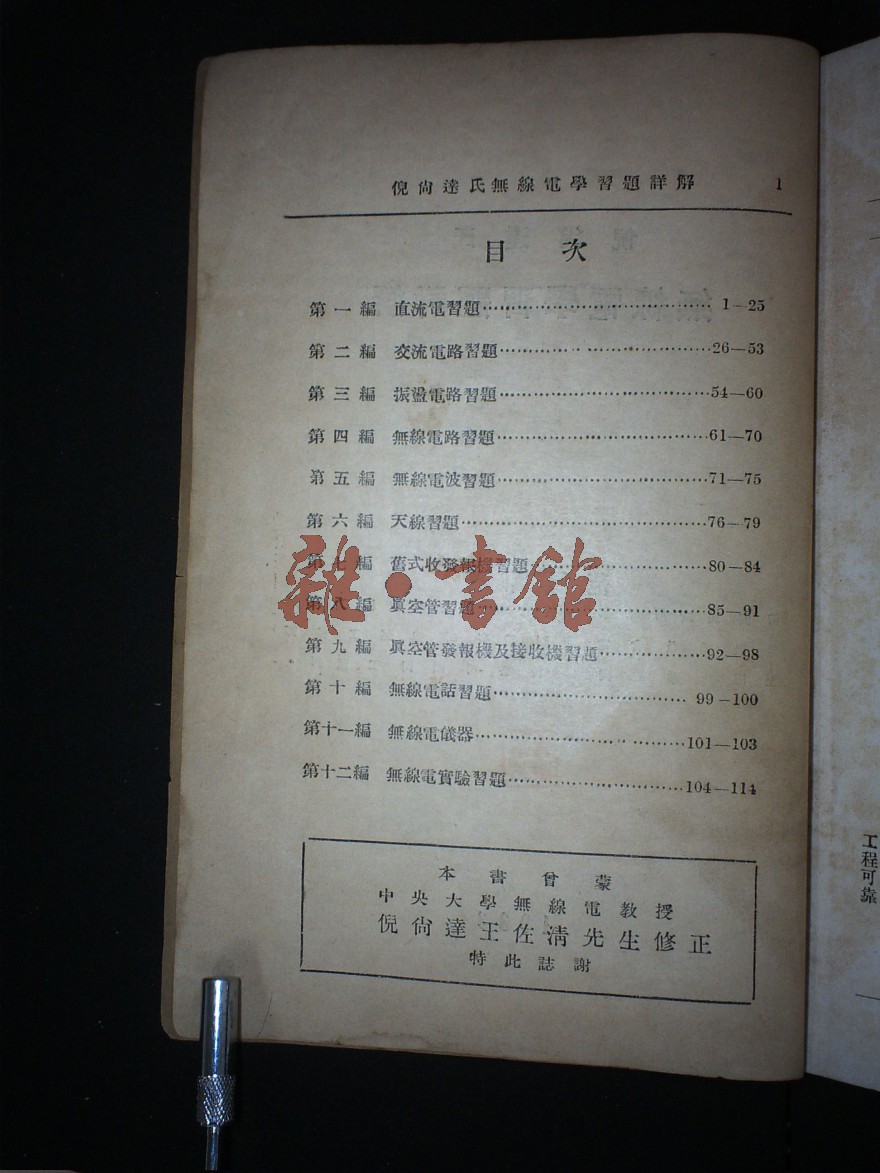 倪尙達氏無線電學習題詳解 1
目次
第一編 直流電習題 1—25
第二編 交流電路習題 26—53
第三編 振盪電路習題 54—60
第四編 無線電路習題 61—70
第五編 無線電波習題 71—75
第六編 天線習題 76—79
第七編 舊式收發報機習題 80—84
第八編 眞空管習題 85—91
第九編 眞空管發報機及接收機習題 92—98
第十編 無線電話習題 99—100
第十一編 無線電儀器 101—103
第十二編 無線電實驗習題 104—114
雜·書館
本書曾蒙
中央大學無線電教授
倪尙達王佐淸先生修正
特此誌謝
工程可靠